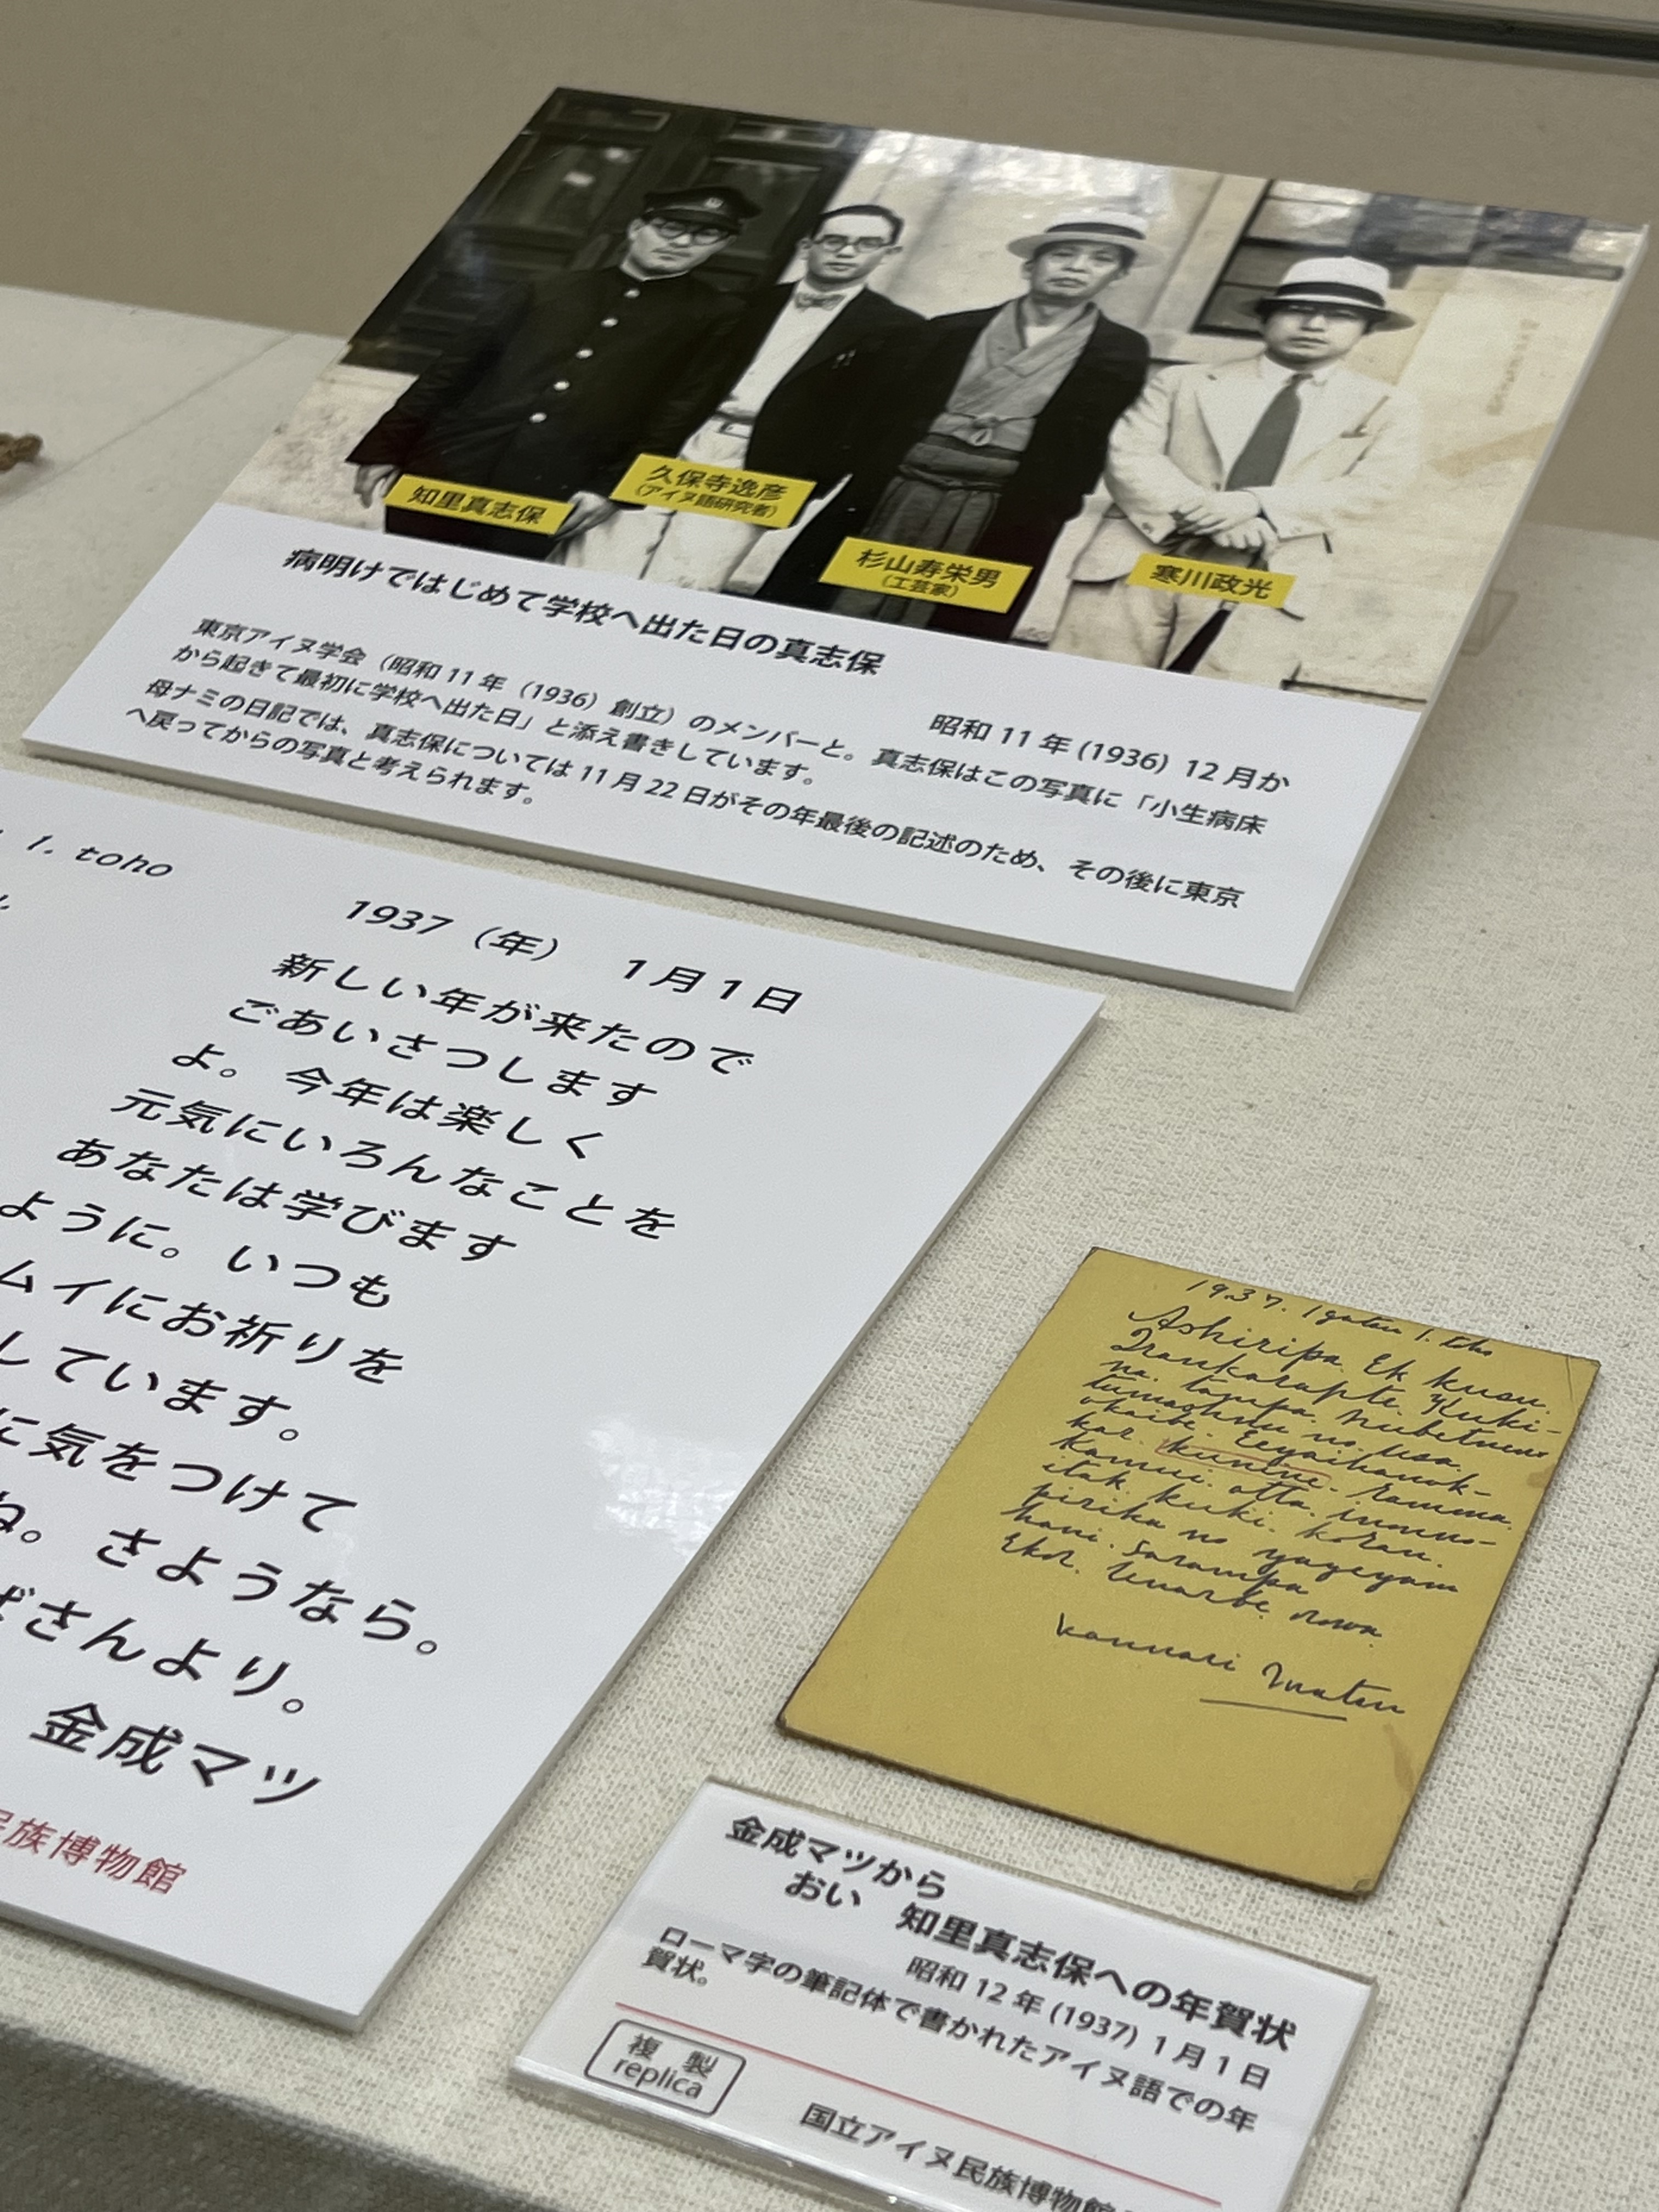 知里真志保
久保寺逸彦
(アイヌ語研究者)
杉山寿栄男
(工芸家)
寒川政光
病明けではじめて学校へ出た日の真志保
昭和 11 年 (1936) 12 月か
東京アイヌ学会（昭和 11 年（1936）創立）のメンバーと。真志保はこの写真に「小生病床
から起きて最初に学校へ出た日」と添え書きしています。
母ナミの日記では、真志保については 11 月 22 日がその年最後の記述のため、その後に東京
へ戻ってからの写真と考えられます。
1. toho
1937（年） 1月1日
新しい年が来たので
ごあいさつします
よ。今年は楽しく
元気にいろんなことを
あなたは学びます
ように。いつも
ムイにお祈りを
しています。
に気をつけて
ね。さようなら。
ばさんより。
金成マツ
民族博物館
1937. 1gatsu 1. toho
Ashiripa. Ek kusu.
Irankarapte. Kuki-
na. tanpa. nubetneno
tumashnu no. usa.
okaibe. Eeyaihanok-
kar. kunine. Ramma.
Kamui. otta. inonno-
itak. kuki. koran.
pirika no yayeyam
hani. Sarampa
Ekor. Unarbe. orowa.
Kannari Matsu
金成マツから
おい 知里真志保への年賀状
昭和 12 年 (1937) 1 月 1 日
ローマ字の筆記体で書かれたアイヌ語での年
賀状。
複 製
replica
国立アイヌ民族博物館